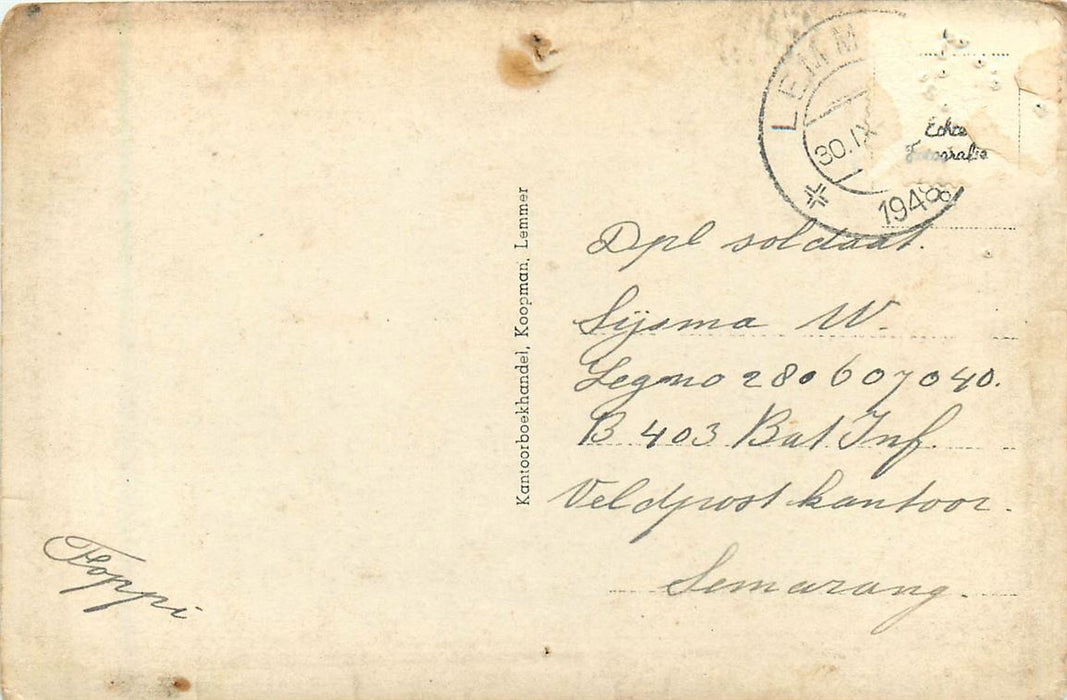 LEMM
30.IX
1948
Echte
Fotografie
Dpl soldaat.
Sijsma W.
Legno 280607040.
B 403 Bat Inf.
Veldpostkantoor.
Semarang.
Kantoorboekhandel, Koopman, Lemmer
Floppi